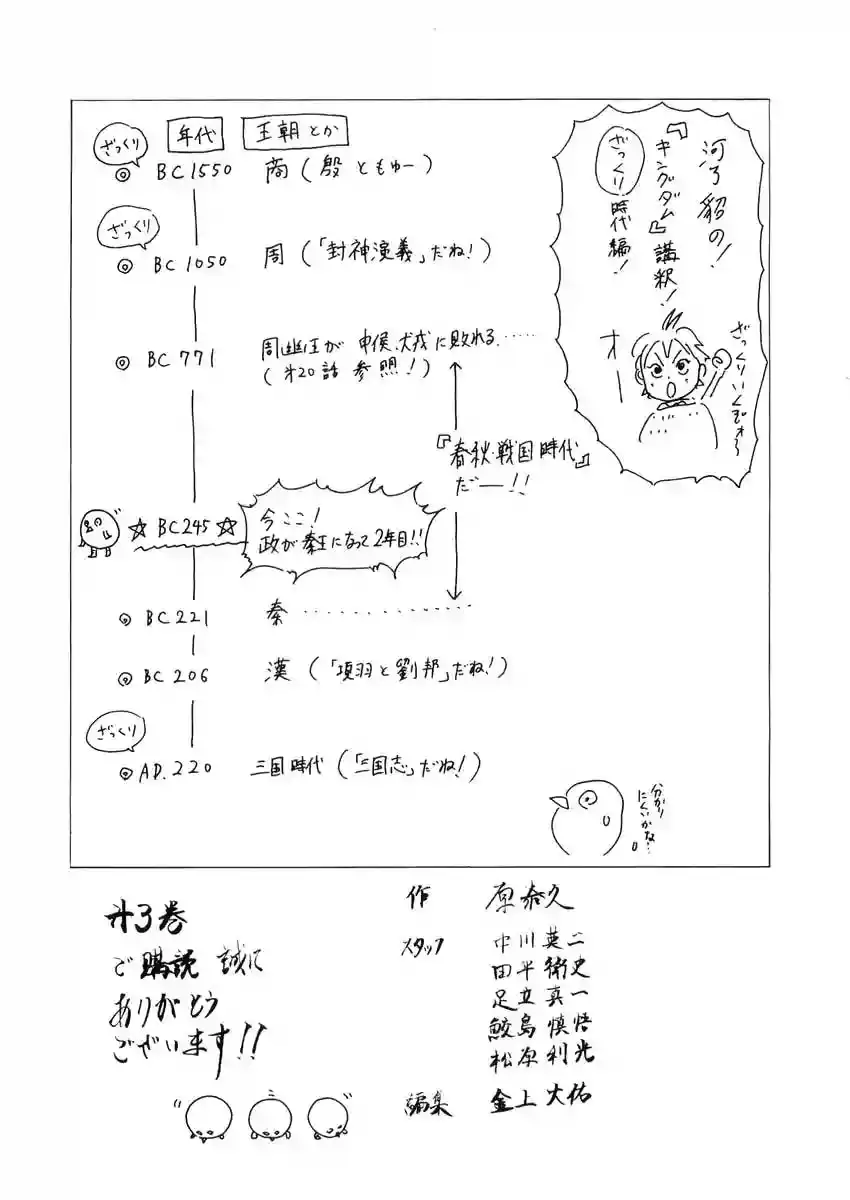 河了貂の!
『キングダム』講釈!
ざっくり時代編!
ざっくりいくぞォ〜
オー
年代 王朝とか
ざっくり
◎ BC1550 商(殷ともゆー)
ざっくり
◎ BC1050 周(「封神演義」だね!)
◎ BC771 周幽王が申侯、犬戎に敗れる……
(才20話参照!)
『春秋・戦国時代』
だー!!
☆BC245☆ 今ココ!
政が秦王になって2年目!!
◎ BC221 秦…………
◎ BC206 漢(「項羽と劉邦」だね!)
ざっくり
◎ AD.220 三国時代(「三国志」だね!)
分かり
にくいかな…
才3巻
ご購読 誠に
ありがとう
ございます!!
作 原泰久
スタッフ 中川英二
田平衛史
足立真一
鮫島慎悟
松原利光
編集 金上大佑